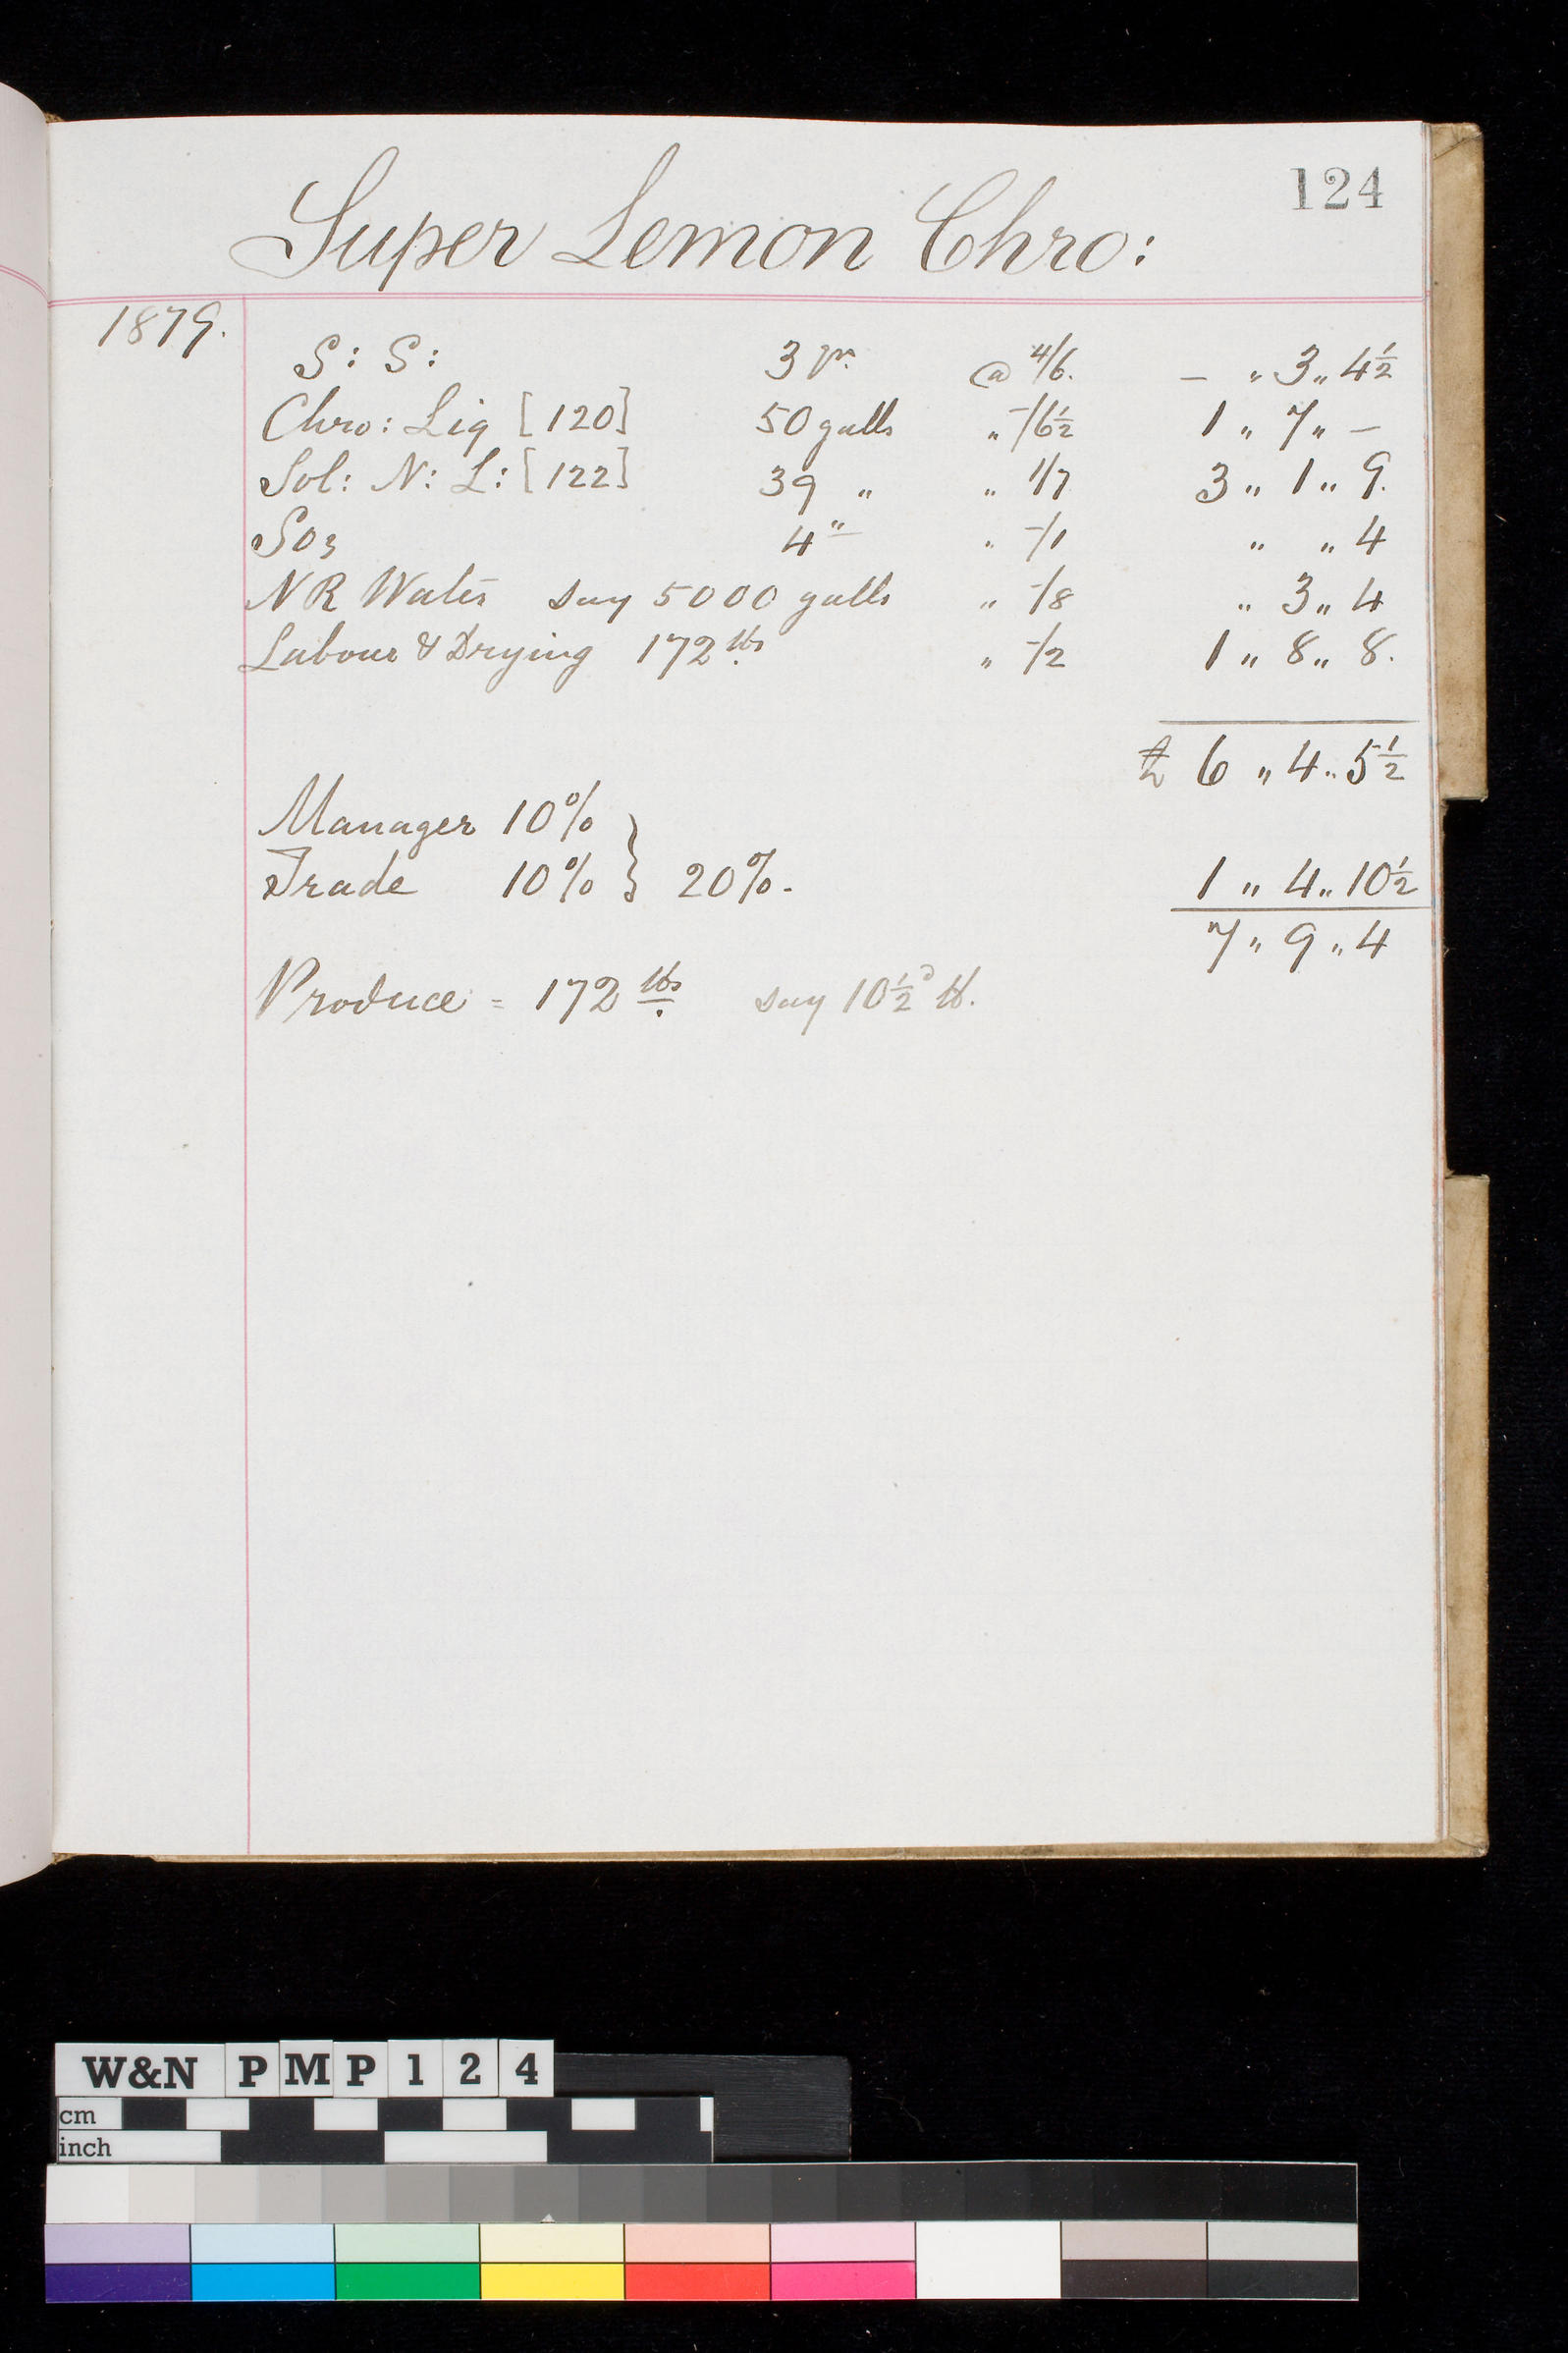 124
Super Lemon Chro:
1879.
S: S: 3 @ 4/6. - " 3 " 4½
Chro: Liq [120] 50 galls " -/6½ 1 " 7 " -
Sol: N: L: [122] 39 " " 1/7 3 " 1 " 9.
SO3 4 " " -/1 " " 4
NR Water say 5000 galls " -/8 " 3 " 4
Labour & Drying 172 lbs " -/2 1 " 8 " 8.
£ 6 " 4 " 5½
Manager 10%
Trade 10% } 20%. 1 " 4 " 10½
7 " 9 " 4
Produce = 172 lbs. say 10½d lb.
W&N PMP124
cm
inch